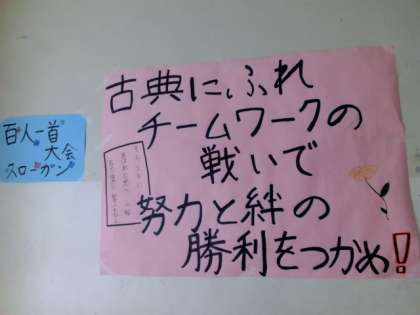 百人一首
大会
スローガン
古典にふれ
チームワークの
戦いで
努力と絆の
勝利をつかめ!